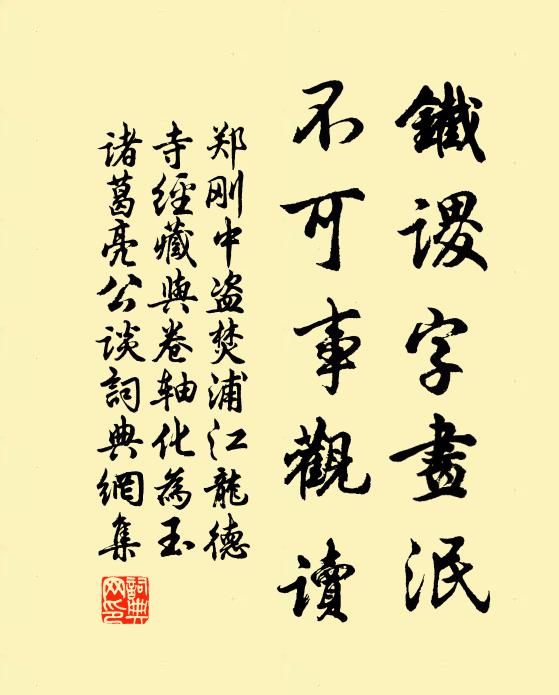 鐵謖字畫泯
不可事觀讀
郑刚中盗焚浦江龍德
寺經藏與卷轴化為玉
诸葛亮公談詞典網集
詞典
网印